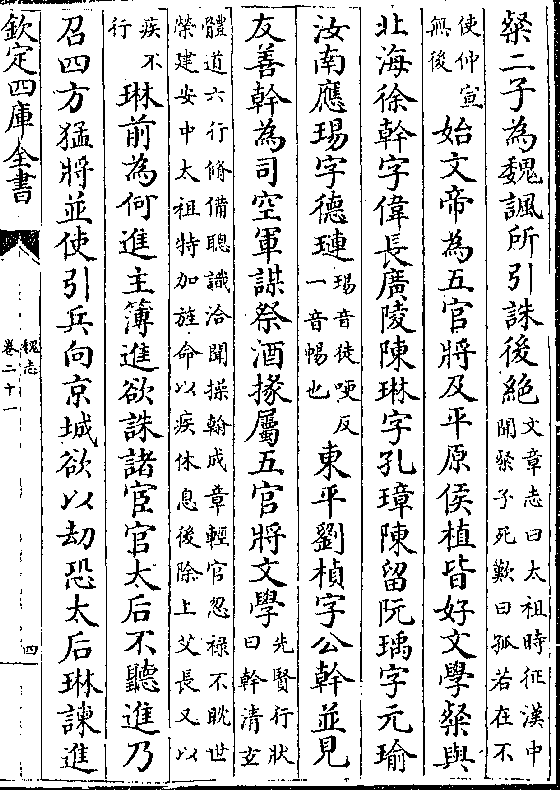 粲二子為魏諷所引誅後絶
文章志曰太祖時征漢中
聞粲子死歎曰孤若在不
使仲宣
無後
始文帝為五官將及平原侯植皆好文學粲與
北海徐幹字偉長廣陵陳琳字孔璋陳留阮瑀字元瑜
汝南應瑒字德璉
瑒音徒哽反
一音暢也
東平劉楨字公幹並見
友善幹為司空軍謀祭酒掾屬五官將文學
先賢行狀
曰幹清玄
體道六行脩備聰識洽聞操翰成章輕官忽祿不眈世
榮建安中太祖特加旌命以疾休息後除上艾長又以
疾不
行
琳前為何進主簿進欲誅諸宦官太后不聽進乃
召四方猛將並使引兵向京城欲以劫恐太后琳諫進
欽定四庫全書
魏志
卷二十一
四